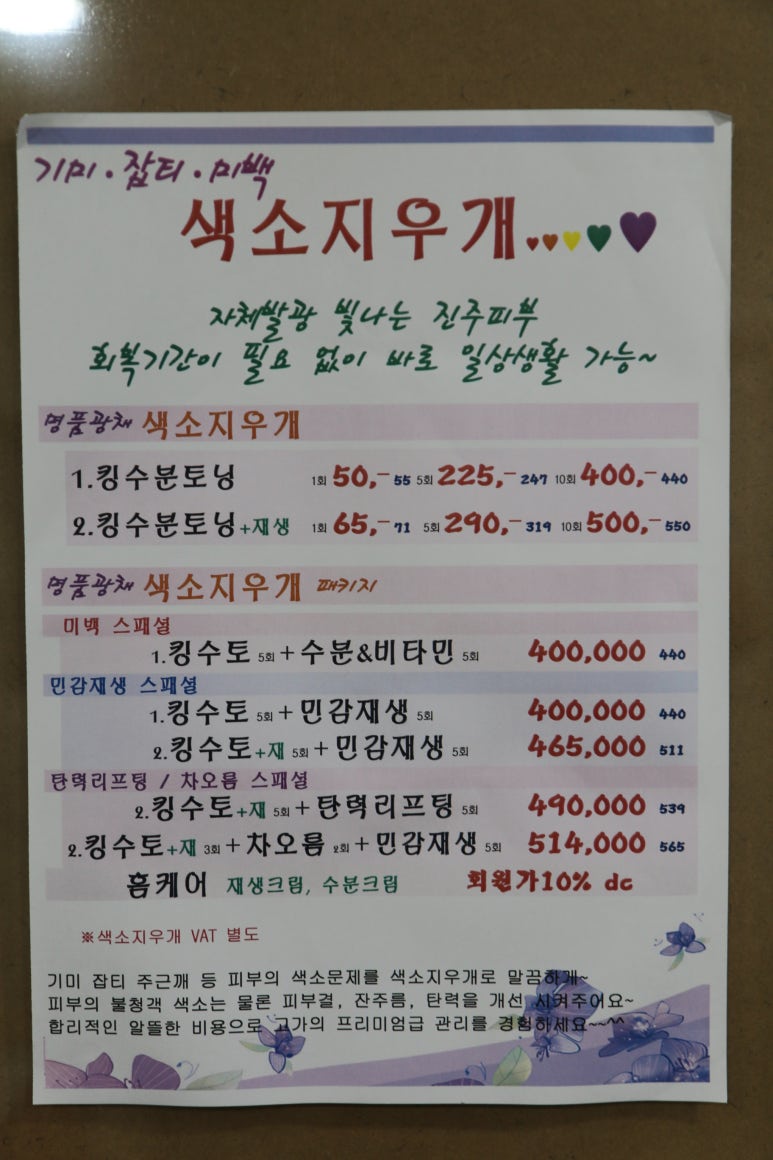 기미 · 잡티 · 미백
색소지우개...
자체발광 빛나는 진주피부
회복기간이 필요 없이 바로 일상생활 가능~
명품광채 색소지우개
1.킹수분토닝 1회 50,- 55 5회 225,- 247 10회 400,- 440
2.킹수분토닝+재생 1회 65,- 71 5회 290,- 319 10회 500,- 550
명품광채 색소지우개 패키지
미백 스패셜
1.킹수토 5회 + 수분&비타민 5회 400,000 440
민감재생 스패셜
1.킹수토 5회 + 민감재생 5회 400,000 440
2.킹수토+재 5회 + 민감재생 5회 465,000 511
탄력리프팅 / 차오름 스패셜
2.킹수토+재 5회 + 탄력리프팅 5회 490,000 539
2.킹수토+재 3회 + 차오름 2회 + 민감재생 5회 514,000 565
홈케어 재생크림, 수분크림 회원가10% dc
※색소지우개 VAT 별도
기미 잡티 주근깨 등 피부의 색소문제를 색소지우개로 말끔하게~
피부의 불청객 색소는 물론 피부결, 잔주름, 탄력을 개선 시켜주어요~
합리적인 알뜰한 비용으로 고가의 프리미엄급 관리를 경험하세요~~^^